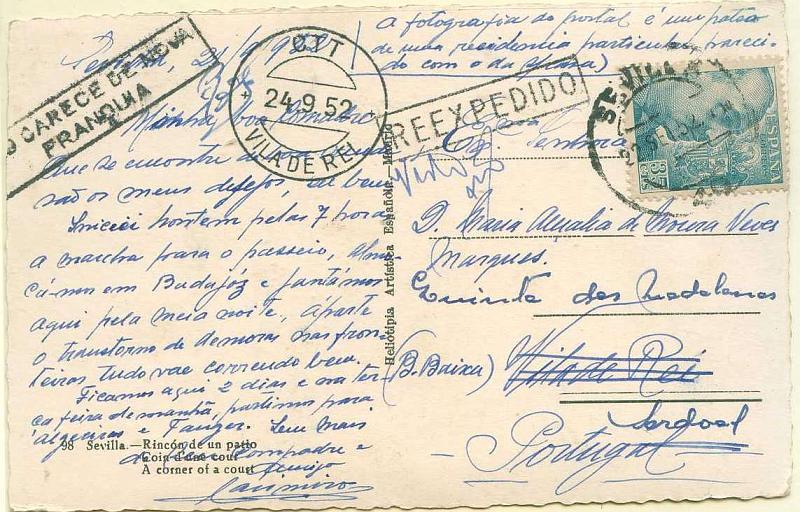 A fotografia do postal é um pateo
de uma residencia particular, pareci-
do com o da Chiana)
Sevilha, 21/9/952
NÃO CARECE DE NOVA
FRANQUIA
CTT
24.9.52
VILA DE REI
REEXPEDIDO
SEVILLA
22 SEP 52
ESPAÑA
35 CTS
Minha boa Comadre
Que se encontre de
são os meus desejos,
Iniciei hontem pelas 7 horas
a marcha para o passeio, almo-
çámos em Badajóz e jantámos
aqui pela meia noite, áparte
o transtorno de demoras nas fron-
teiras tudo vae correndo bem.
Ficamos aqui 2 dias e na ter-
ça feira de manhã, partimos para
Algeciras e Tanger. Sem mais
Compadre e
amigo
Casimiro
98 Sevilla.—Rincón de un patio
Coin d'une cour
A corner of a court
Heliotipia Artística Española.—Madrid
Senhora
D. Maria Amalia de Moura Neves
Marques.
Quinta das Madalenas
(B. Baixa) Vila de Rei
Sardoal
- Portugal -